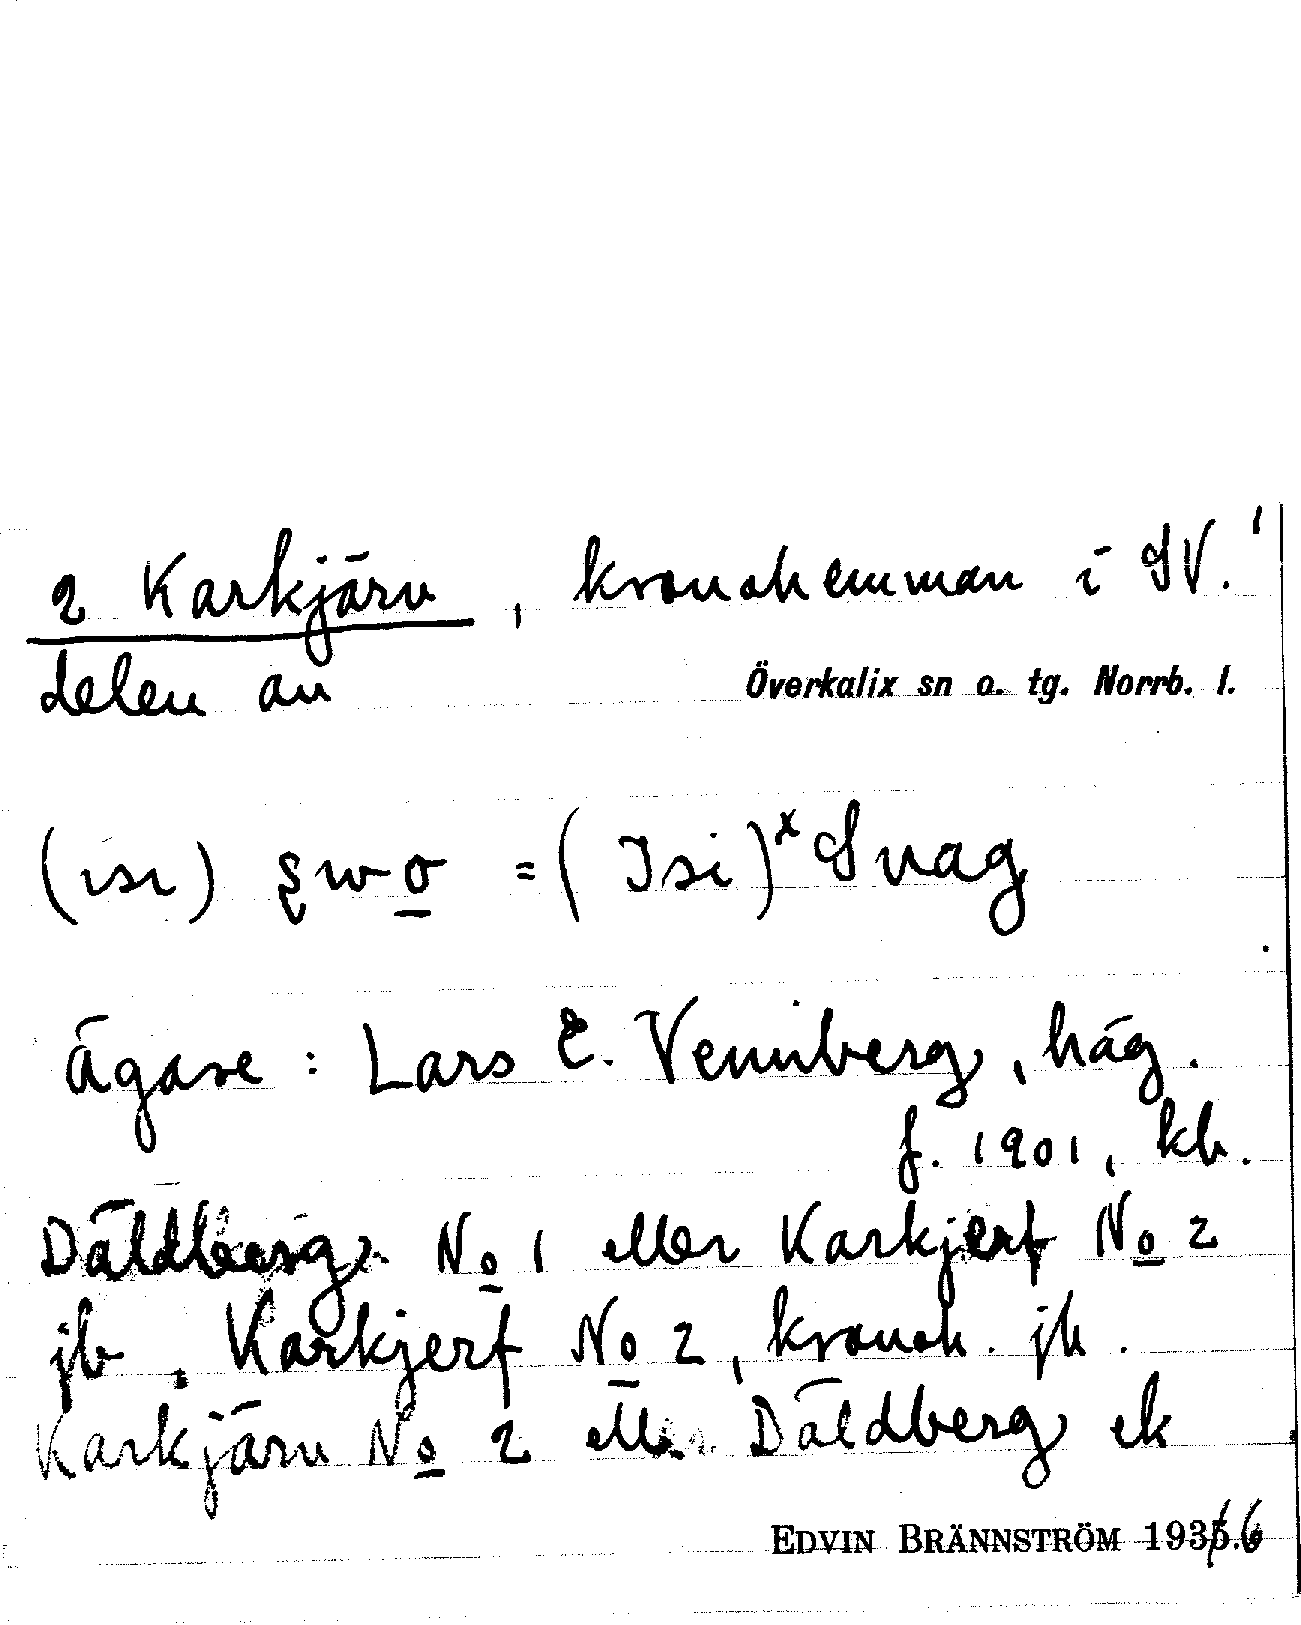 2 Karkjärv, kronohemman i SV. 1
delen av Överkalix sn o. tg. Norrb. l.
(ısı) = (Isi) ˣSvag
Ägare: Lars E. Vennberg, häg.
f. 1901, kb.
Däldberg No 1 eller Karkjerf No 2
jb, Karkjerf No 2, kronoh. jb.
Karkjärv No 2 eller Däldberg ek
EDVIN BRÄNNSTRÖM 1935.6